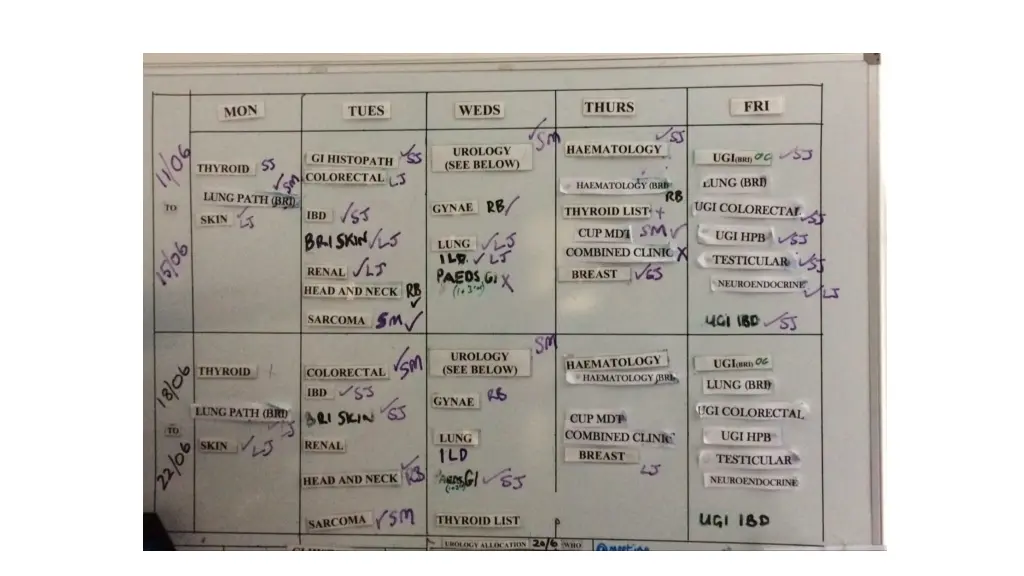 MON TUES WEDS THURS FRI
11/06 TO 15/06
THYROID SJ
LUNG PATH (BRI) ✓SM
SKIN LJ
GI HISTOPATH ✓SJ
COLORECTAL LJ
IBD ✓SJ
BRI SKIN ✓LJ
RENAL ✓LJ
HEAD AND NECK RB ✓
SARCOMA SM ✓
UROLOGY ✓SM
(SEE BELOW)
GYNAE RB ✓
LUNG ✓LJ
ILD ✓LJ
PAEDS GI X
HAEMATOLOGY ✓SJ
HAEMATOLOGY (BRI) RB
THYROID LIST +
CUP MDT SM ✓
COMBINED CLINIC X
BREAST ✓
UGI (BRI) OG ✓SJ
LUNG (BRI)
UGI COLORECTAL ✓SJ
UGI HPB ✓SJ
TESTICULAR ✓SJ
NEUROENDOCRINE ✓LJ
UGI IBD ✓SJ
18/06 TO 22/06
THYROID
LUNG PATH (BRI) ✓LJ
SKIN ✓LJ
COLORECTAL ✓SM
IBD ✓SJ
BRI SKIN ✓SJ
RENAL
HEAD AND NECK ✓RB
SARCOMA ✓SM
UROLOGY SM
(SEE BELOW)
GYNAE RB
LUNG
ILD
PAEDS GI ✓SJ
THYROID LIST
HAEMATOLOGY
HAEMATOLOGY (BRI)
CUP MDT
COMBINED CLINIC
BREAST LJ
UGI (BRI) OG
LUNG (BRI)
UGI COLORECTAL
UGI HPB
TESTICULAR
NEUROENDOCRINE
UGI IBD
UROLOGY ALLOCATION 20/6 WHO